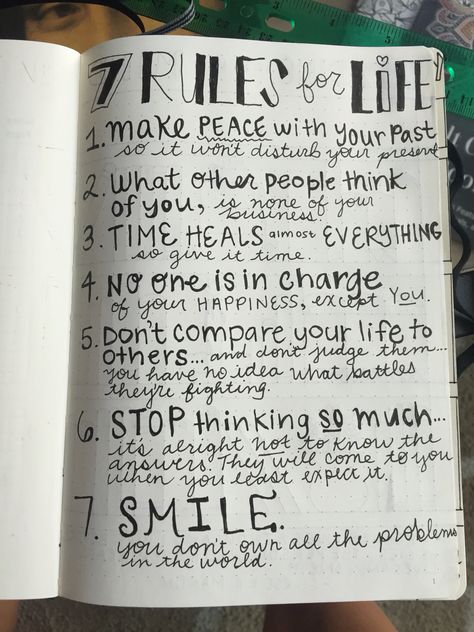 7 RULES for LiFE
1. Make PEACE with your past
so it won't disturb your present
2. What other people think
of you, is none of your
business
3. TIME HEALS almost EVERYTHING
so give it time.
4. No one is in charge
of your HAPPINESS, except You.
5. Don't compare your life to
others... and don't judge them...
you have no idea what battles
they're fighting.
6. STOP thinking so much...
it's alright not to know the
answers. They will come to you
when you least expect it.
7. SMILE.
you don't own all the problems
in the world.